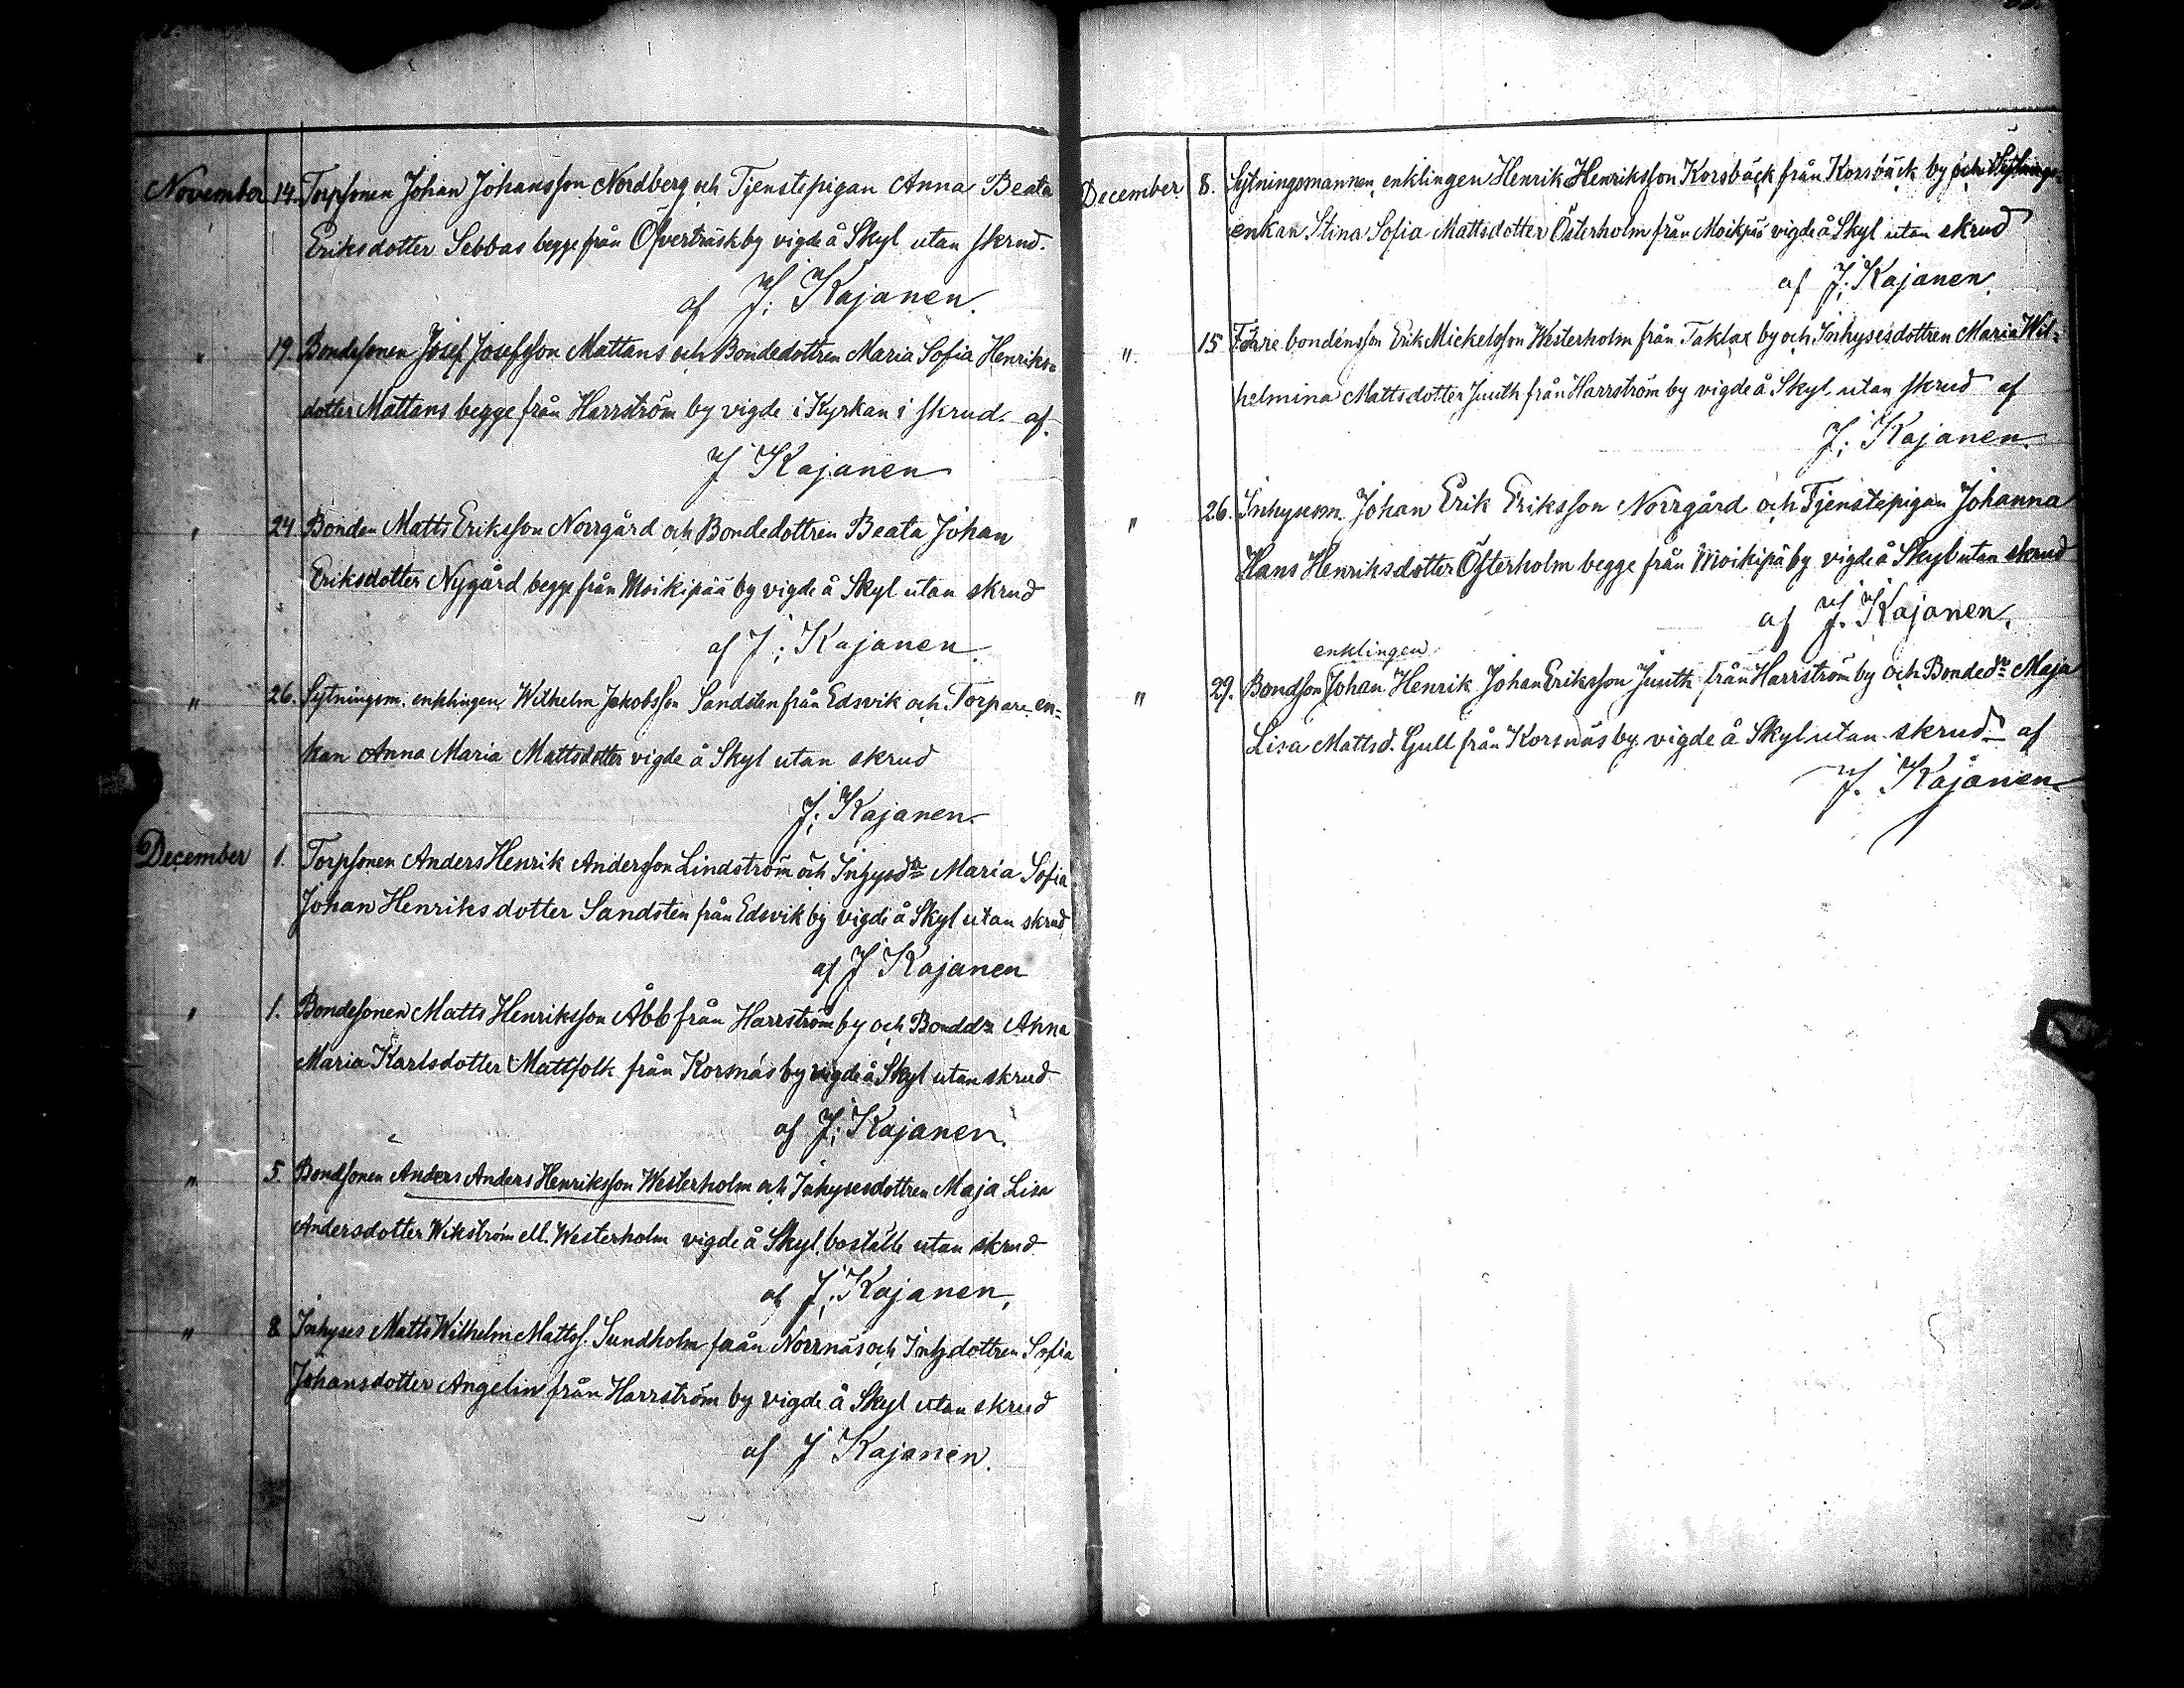 November 14. Torpsonen Johan Johansson Nordberg och Tjenstepigan Anna Beata
Eriksdotter Sebbas begge från Öfverträsk by vigde å Skyl utan skrud.
af J; Kajanen.
" 19. Bondesonen Josef Josefsson Mattans och Bondedottren Maria Sofia Henriks=
dotter Mattans begge från Harrström by vigde i Kyrkan i skrud. af.
J Kajanen
" 24. Bonden Matts Eriksson Norrgård och Bondedottren Beata Johan
Eriksdotter Nygård begge från Moikipää by vigde å Skyl utan skrud
af J; Kajanen.
" 26. Sytningsm. enklingen Wilhelm Jakobsson Sandsten från Edsvik och Torpare en=
kan Anna Maria Mattsdotter vigde å Skyl utan skrud
J; Kajanen.
December 1. Torpsonen Anders Henrik Andersson Lindström och Inhysdn Maria Sofia
Johan Henriksdotter Sandsten från Edsvik by vigde å Skyl utan skrud
af J Kajanen
" 1. Bondesonen Matts Henriksson Åbb från Harrström by och Bonddn Anna
Maria Karlsdotter Mattfolk från Korsnäs by vigde å Skyl utan skrud
af J; Kajanen.
" 5. Bondsonen Anders Anders Henriksson Westerholm och Inhysesdottren Maja Lisa
Andersdotter Wikström ell. Westerholm vigde å Skyl. boställe utan skrud
af J; Kajanen,
" 8 Inhyses Matts Wilhelm Mattss. Sundholm från Norrnäs och Inh.dottren Sofia
Johansdotter Angelin från Harrström by vigde å Skyl utan skrud
af J Kajanen.
December 8. Sytningsmannen enklingen Henrik Henriksson Korsbäck från Korsbäck by och Sytnings=
enkan Stina Sofia Mattsdotter Österholm från Moikpää vigde å Skyl utan skrud
af J; Kajanen.
" 15 Förre bondensson Erik Mickelsson Westerholm från Taklax by och Inhysesdottren Maria Wil=
helmina Mattsdotter Juuth från Harrström by vigde å Skyl. utan skrud af
J; Kajanen.
" 26. Inhysesm. Johan Erik Eriksson Norrgård och Tjenstepigan Johanna
Hans Henriksdotter Österholm begge från Moikipä by vigde å Skyl utan skrud
af J. Kajanen.
enklingen
" 29. Bondson Johan Henrik Johan Eriksson Juuth från Harrström by och Bondedn Maja
Lisa Mattsd. Gull från Korsnäs by. vigde å Skyl utan skrud af
J. Kajanen